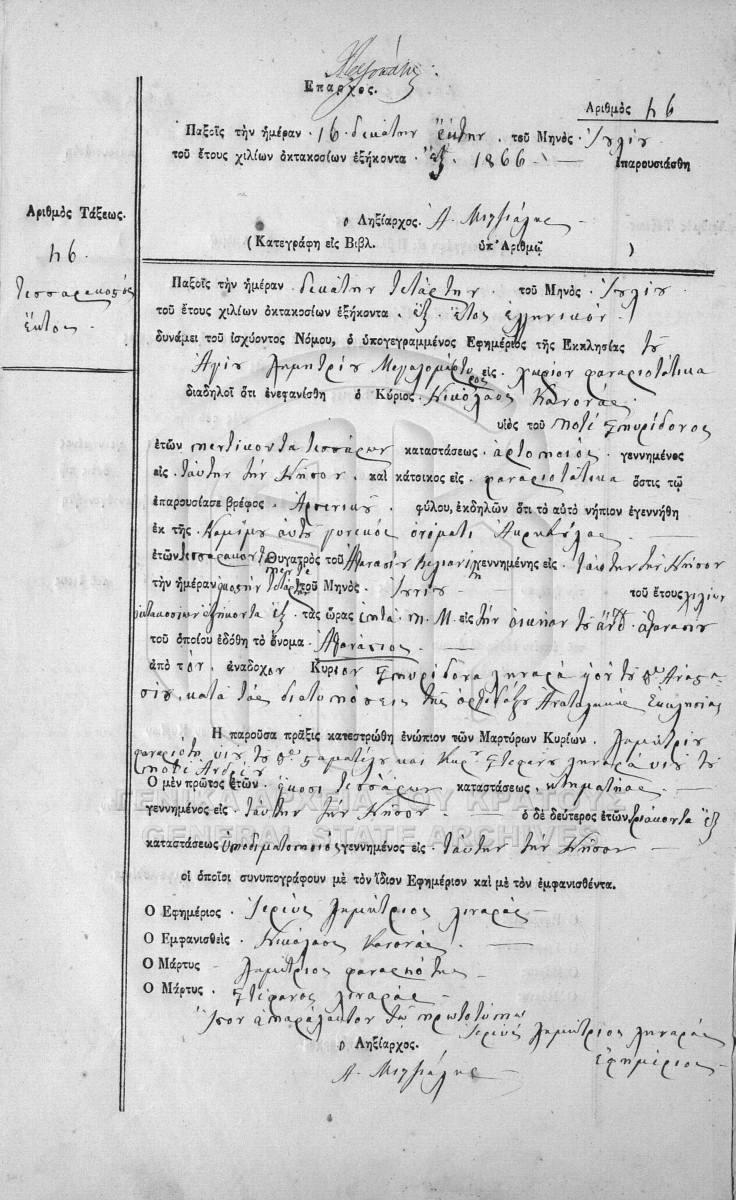 Επαρχος.
Αριθμὸς 46
Παξοῖς τὴν ἡμέραν 16 δεκάτην ἕκτην τοῦ Μηνὸς Ιουλίου
τοῦ ἔτους χιλίων ὀκτακοσίων ἑξήκοντα ἕξ 1866 Επαρουσιάσθη
ὁ Ληξίαρχος Α.
(Κατεγράφη εἰς Βιβλ. ὑπ' Αριθμῷ )
Αριθμὸς Τάξεως.
46
τεσσαρακοστός
ἕκτος
Παξοῖς τὴν ἡμέραν δεκάτην τετάρτην τοῦ Μηνὸς Ιουλίου
τοῦ ἔτους χιλίων ὀκτακοσίων ἑξήκοντα ἕξ ἔτος ἑλληνικόν
δυνάμει τοῦ ἰσχύοντος Νόμου, ὁ ὑπογεγραμμένος Εφημέριος τῆς Εκκλησίας τοῦ
Αγίου Δημητρίου Μεγαλομάρτυρος εἰς χωρίον φαναριοτάτικα
διαδηλοῖ ὅτι ἐνεφανίσθη ὁ Κύριος Νικόλαος Κανονάς
υἱὸς τοῦ ποτὲ Σπυρίδονος
ἐτῶν πεντίκοντα τεσσάρων καταστάσεως ἀρτοποιός γεννημένος
εἰς ταύτην τὴν Νῆσον καὶ κάτοικος εἰς φαναριοτάτικα ὅστις τῷ
ἐπαρουσίασε βρέφος Αρσενικοῦ φύλου, ἐκδηλῶν ὅτι τὸ αὐτὸ νήπιον ἐγεννήθη
ἐκ τῆς Νομίμου αὐτοῦ γυνεκός ὀνόματι
ἐτῶν τεσσαράκοντα πέντε θυγατρὸς τοῦ Αθανασίου γεννημένης εἰς ταύτην τὴν Νῆσον
τὴν ἡμέραν ηκοστὴν τετάρτην τοῦ Μηνὸς Ιουνίου τοῦ ἔτους χιλίων
οκτακοσίων εξήκοντα ἕξ τὰς ὥρας ἑπτὰ π. Μ. εἰς τὴν οἰκίαν τοῦ Αθανασίου
τοῦ ὁποίου ἐδόθη τὸ ὄνομα Αθανάσιος
ἀπὸ τὸν ἀνάδοχον Κύριον Σπυρίδονα Ληναρά υἱὸν τοῦ Αναστα
σίου, κατὰ τὰς διατυπόσεις τῆς ορθοδόξου Ανατολικῆς Εκκλησίας
Η παροῦσα πρᾶξις κατεστρώθη ἐνώπιον τῶν Μαρτύρων Κυρίων Δημητρίου
φαναριότη υἱοῦ τοῦ Σταματέλου καὶ Κυρ Στεφάνου Ληναρά υἱοῦ τοῦ
ποτὲ Ανδρέου
Ο μὲν πρῶτος ἐτῶν ηκοσι τεσσάρων καταστάσεως κτηματίας
γεννημένος εἰς ταύτην τὴν Νῆσον ὁ δὲ δεύτερος ἐτῶν τριάκοντα ἕξ
καταστάσεως υποδιματοποιός γεννημένος εἰς ταύτην τὴν Νῆσον
οἱ ὁποῖοι συνυπογράφουν μὲ τὸν ἴδιον Εφημέριον καὶ μὲ τὸν ἐμφανισθέντα.
Ο Εφημέριος Ιερεύς Δημήτριος Λιναράς
Ο Εμφανισθεὶς Νικόλαος Κανονάς
Ο Μάρτυς Δημίτριος φαναριότης
Ο Μάρτυς Στέφανος Λιναράς
Ίσον απαράλακτον τῷ πρωτοτύπῳ
Ιερεύς Δημήτριος Ληναράς
εφημέριος
ὁ Ληξίαρχος.
Α.
ΓΕΝΙΚΑ ΑΡΧΕΙΑ ΤΟΥ ΚΡΑΤΟΥΣ
GENERAL STATE ARCHIVES